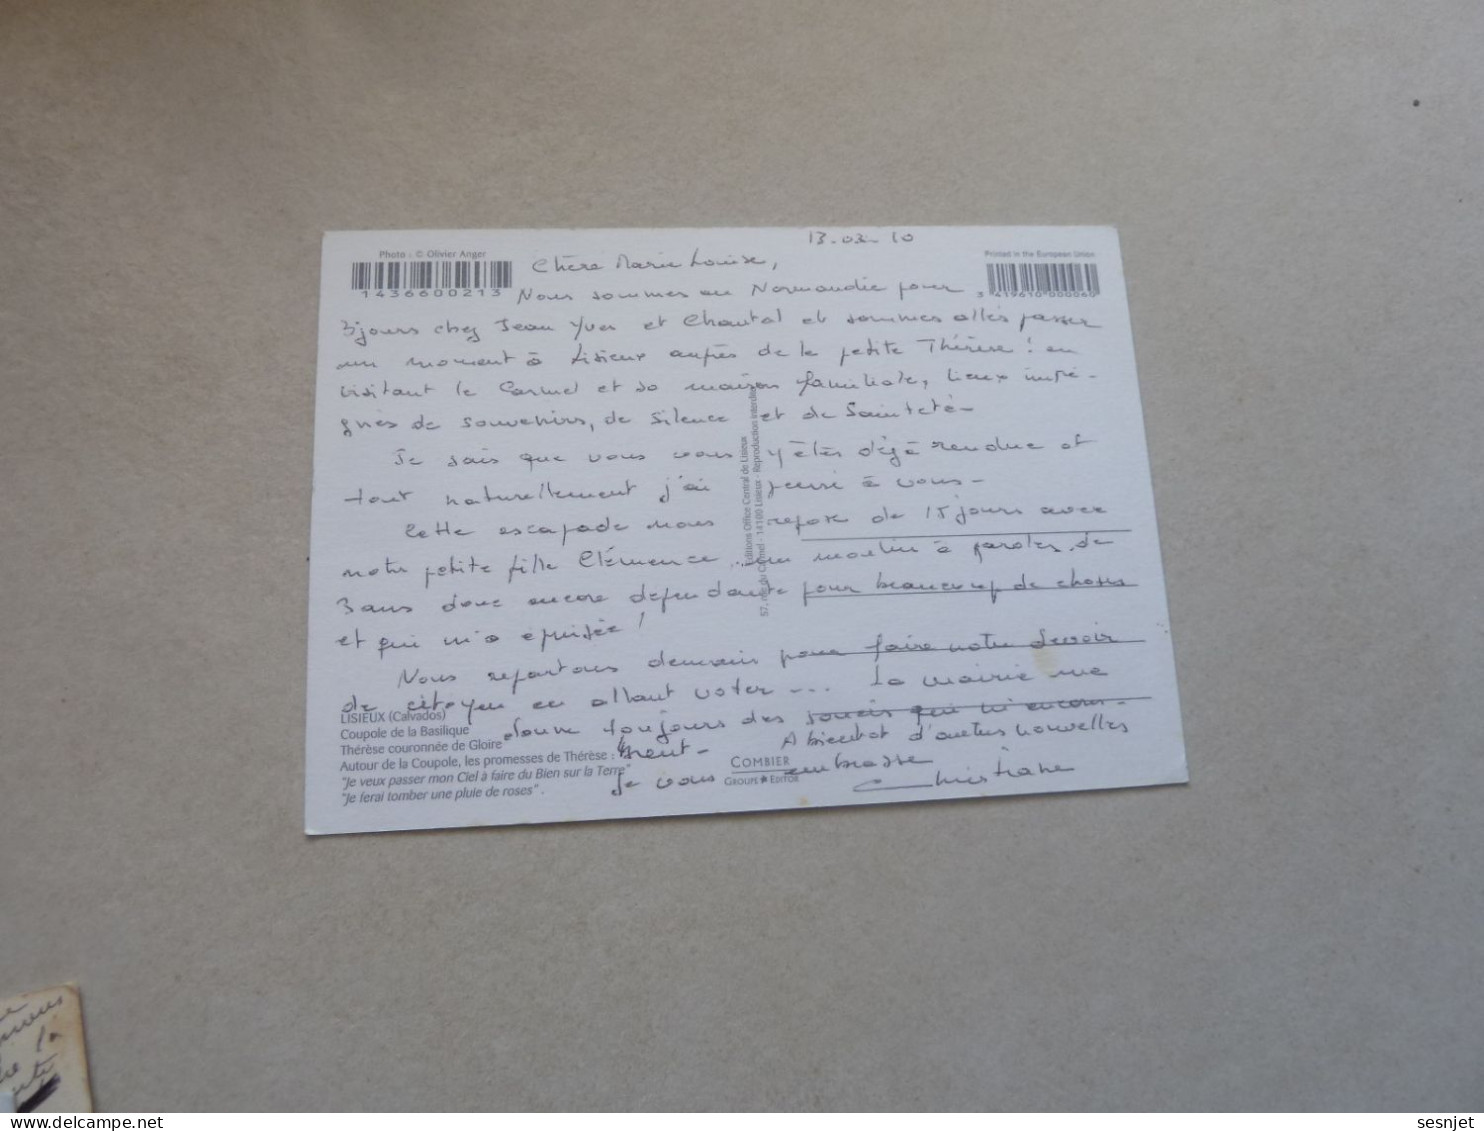 13.03.10
Photo : © Olivier Anger
Printed in the European Union
1436600213
3 419610 000060
Chère Marie Louise,
Nous sommes en Normandie pour
3 jours chez Jean Yves et Chantal et sommes allés passer
un moment à Lisieux auprès de la petite Thérèse ! en
visitant le Carmel et sa maison familiale, lieux impré-
gnés de souvenirs, de silence et de Sainteté -
Je sais que vous vous y êtes déjà rendue et
tout naturellement j'ai pensé à vous -
Cette escapade nous repose de 15 jours avec
notre petite fille Clémence, un moulin à paroles, de
3 ans donc encore dépendante pour beaucoup de choses
et qui m'a épuisée !
Nous repartons demain pour faire notre devoir
de citoyen en allant voter ... La mairie me
donne toujours des soucis qui m'encom-
brent -
A bientôt d'autres nouvelles
Je vous embrasse
Christiane
LISIEUX (Calvados)
Coupole de la Basilique
Thérèse couronnée de Gloire
Autour de la Coupole, les promesses de Thérèse :
"Je veux passer mon Ciel à faire du Bien sur la Terre"
"Je ferai tomber une pluie de roses".
Editions Office Central de Lisieux
57, rue du Carmel - 14100 Lisieux - Reproduction interdite
COMBIER
GROUPE EDITOR
sesnjet